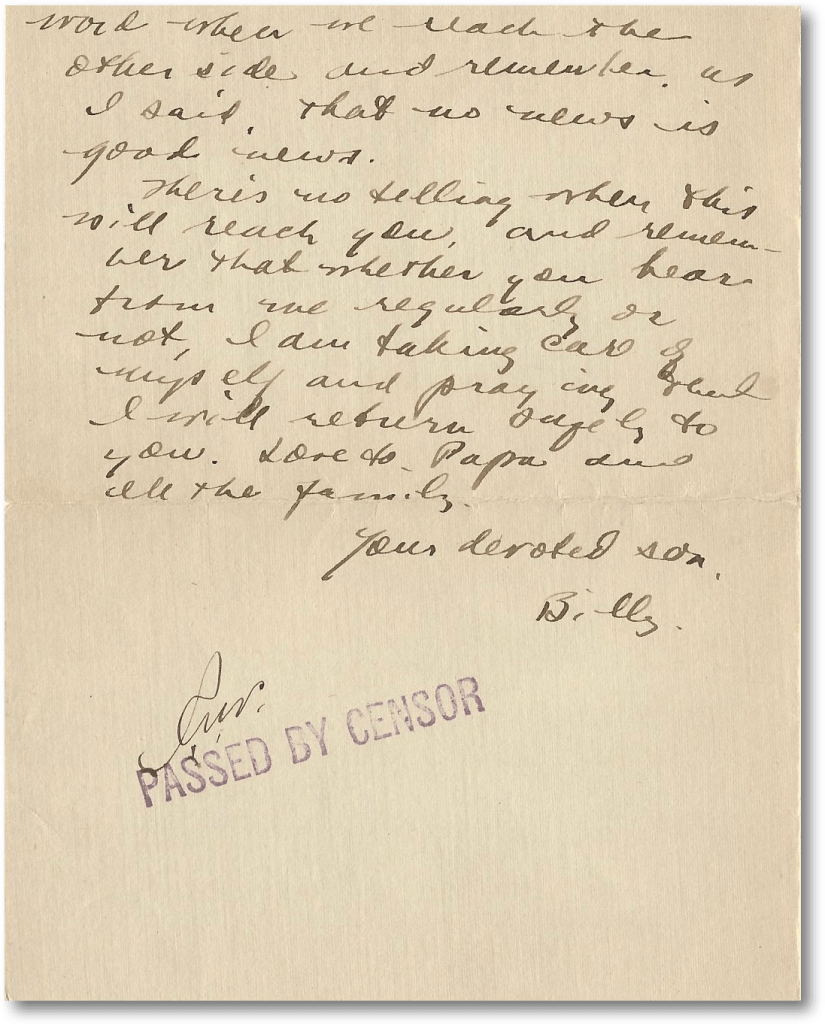 word when we reach the
other side and remember, as
I said, that no news is
good news.
There's no telling when this
will reach you, and remem-
ber that whether you hear
from me regularly or
not, I am taking care of
myself and praying that
I will return safely to
you. Love to Papa and
all the family.
Your devoted son,
Billy.
PASSED BY CENSOR